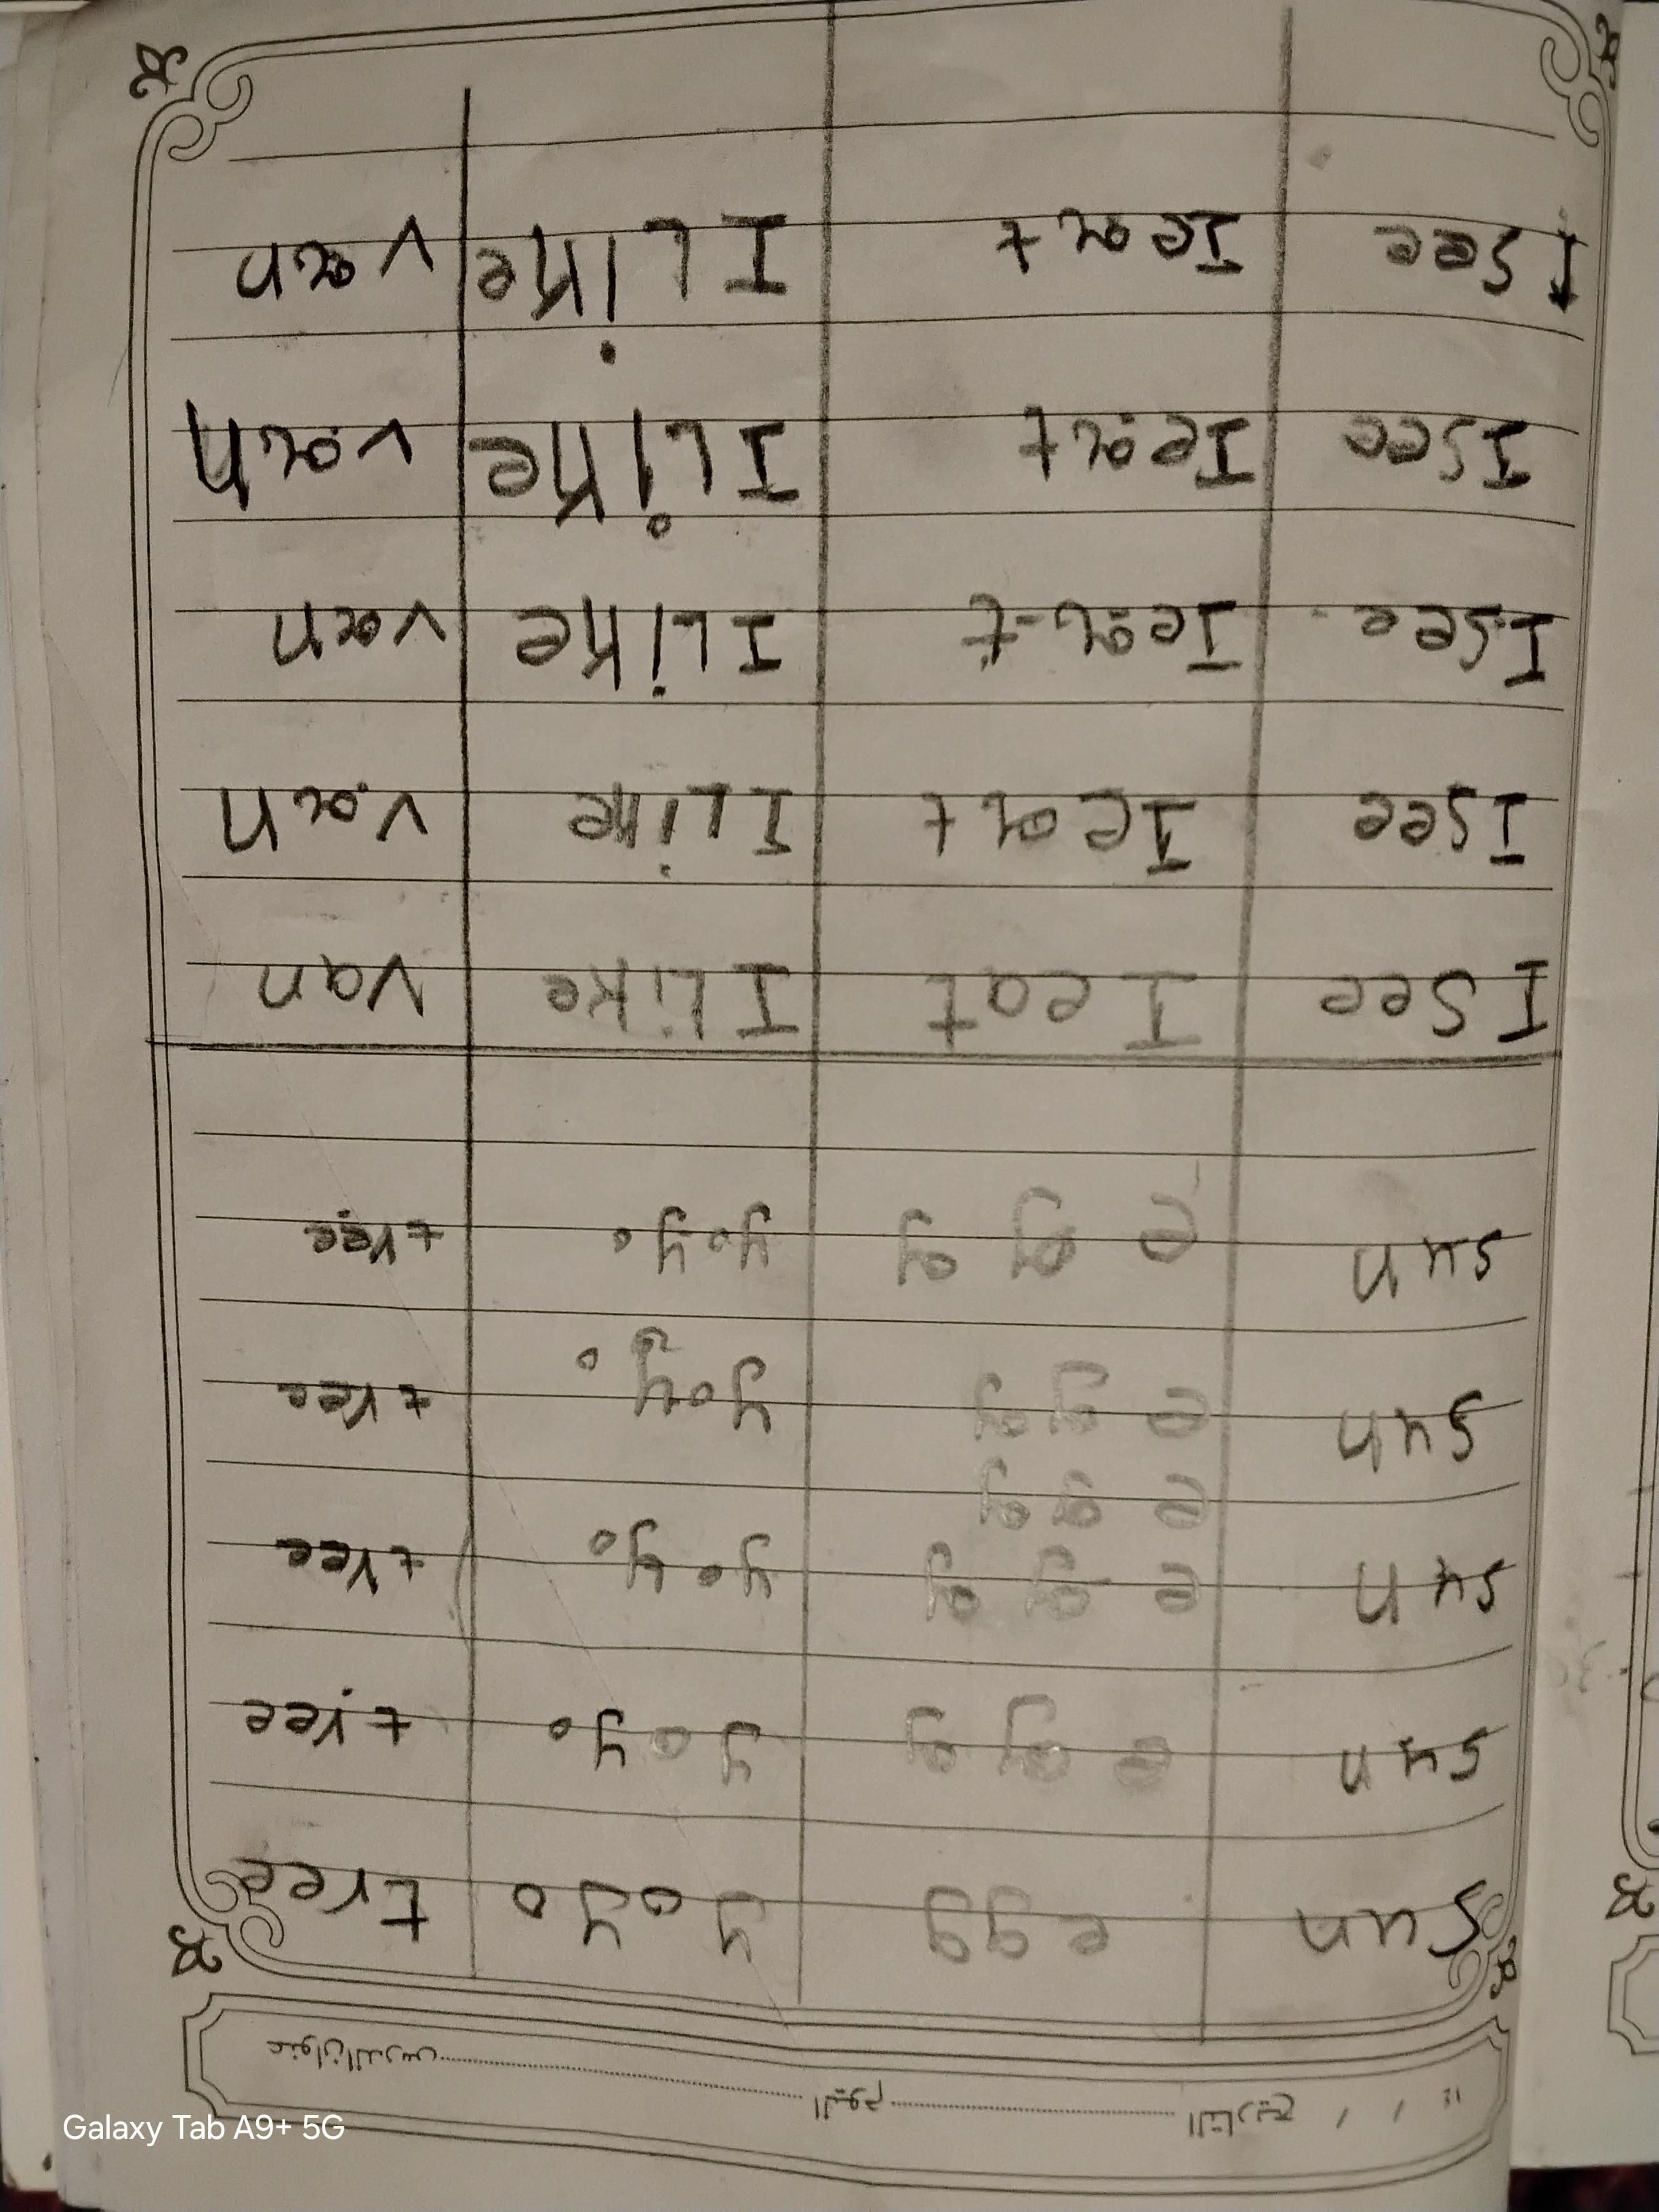 التاريخ / / ١٤ اليوم عنوان الدرس
sun egg yoyo tree
sun e g g yoyo tree
sun e g g yoyo tree
e g g
sun e g g yoyo tree
sun e g g yoyo tree
I see I eat I Like van
I see I eat I Like van
I see I eat I Like van
I see I eat I Like van
I see I eat I Like van
Galaxy Tab A9+ 5G